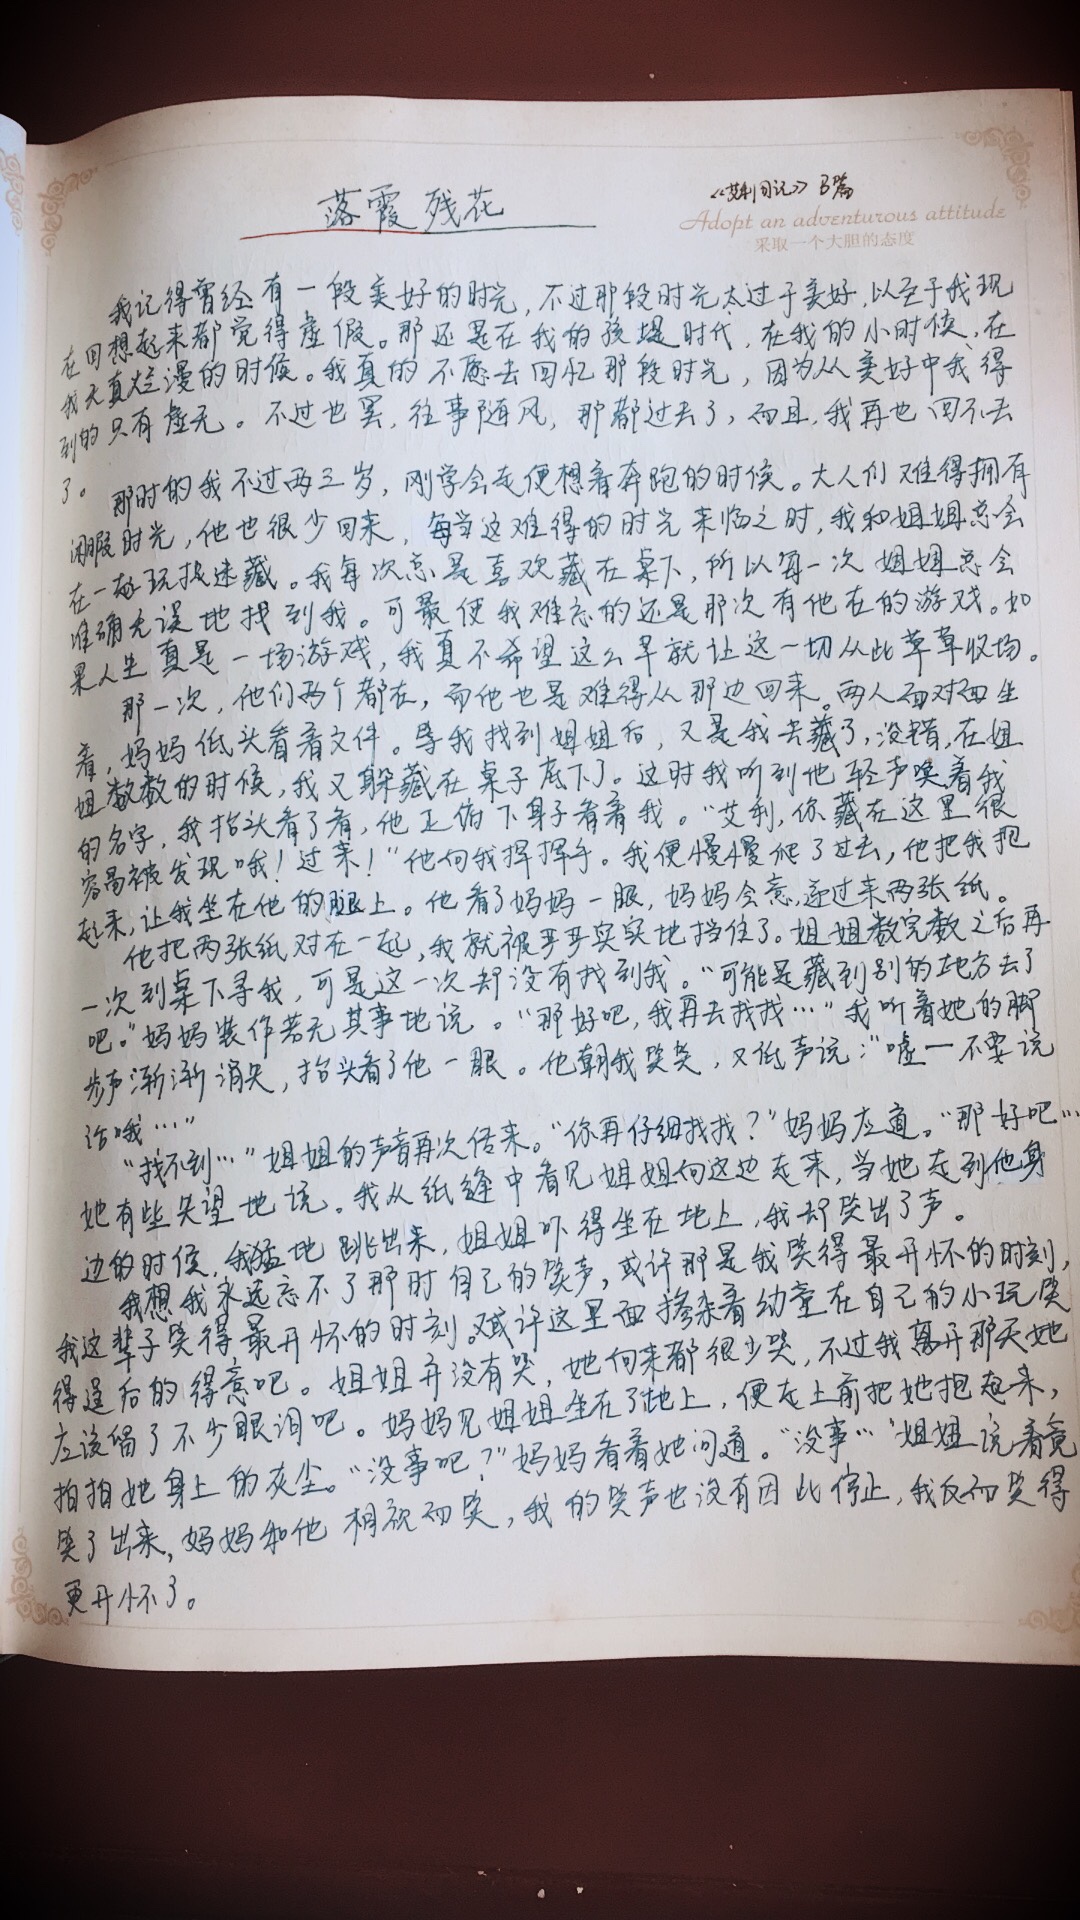 落霞残花
《艾利日记》
Adopt an adventurous attitude
采取一个大胆的态度
我记得曾经有一段美好的时光，不过那段时光太过于美好，以至于我现
在回想起来都觉得虚假。那还是在我的孩提时代，在我的小时候，在
我天真烂漫的时候。我真的不愿去回忆那段时光，因为从美好中我得
到的只有虚无。不过也罢，往事随风，那都过去了，而且，我再也回不去
了。
那时的我不过两三岁，刚学会走便想着奔跑的时候。大人们难得拥有
闲暇时光，他也很少回来，每当这难得的时光来临之时，我和姐姐总会
在一起玩捉迷藏。我每次总是喜欢藏在桌下，所以每一次姐姐总会
准确无误地找到我。可最使我难忘的还是那次有他在的游戏。如
果人生真是一场游戏，我真不希望这么早就让这一切从此草草收场。
那一次，他们两个都在，而他也是难得从那边回来。两人面对面坐
着，妈妈低头看着文件。等我找到姐姐后，又是我去藏了，没错，在姐
姐数数的时候，我又躲藏在桌子底下了。这时我听到他轻声唤着我
的名字，我抬头看了看，他正俯下身子看着我。“艾利，你藏在这里很
容易被发现哦！过来！”他向我挥挥手。我便慢慢爬了过去，他把我抱
起来，让我坐在他的腿上。他看了妈妈一眼，妈妈会意，递过来两张纸。
他把两张纸对在一起，我就被严严实实地挡住了。姐姐数完数之后再
一次到桌下寻我，可是这一次却没有找到我。“可能是藏到别的地方去了
吧。”妈妈装作若无其事地说。“那好吧，我再去找找…”我听着她的脚
步声渐渐消失，抬头看了他一眼。他朝我笑笑，又低声说：“嘘一不要说
话哦…”
“找不到…”姐姐的声音再次传来。“你再仔细找找？”妈妈应道。“那好吧…
她有些失望地说。我从纸缝中看见姐姐向这边走来，当她走到他身
边的时候，我猛地跳出来，姐姐吓得坐在地上，我却笑出了声。
我想我永远忘不了那时自己的笑声，或许那是我笑得最开怀的时刻，
我这辈子笑得最开怀的时刻。或许这里面掺杂着幼童在自己的小玩笑
得逞后的得意吧。姐姐并没有哭，她向来都很少哭，不过我离开那天她
应该留了不少眼泪吧。妈妈见姐姐坐在了地上，便走上前把她抱起来，
拍拍她身上的灰尘。“没事吧？”妈妈看着她问道。“没事…”姐姐说着竟
笑了出来，妈妈和他相视而笑，我的笑声也没有因此停止，我反而笑得
更开怀了。